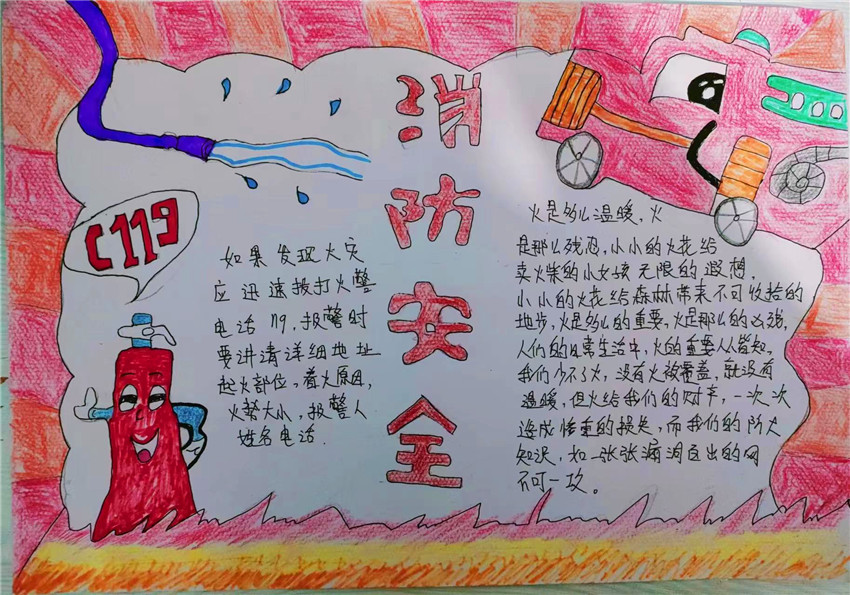 消防安全
119
如果发现火灾
应迅速拨打火警
电话119,报警时
要讲清详细地址
起火部位,着火原因,
火势大小,报警人
姓名电话.
火是多么温暖,火
是那么残忍,小小的火花给
卖火柴的小女孩无限的遐想,
小小的火花给森林带来不可收拾的
地步,火是多么的重要,火是那么的凶残,
人们的日常生活中,火的重要人人皆知,
我们少不了火,没有火被覆盖,就没有
温暖,但火给我们的财产,一次次
造成惨重的损失,而我们的防火
知识,如一张张漏洞百出的网
不可一攻。